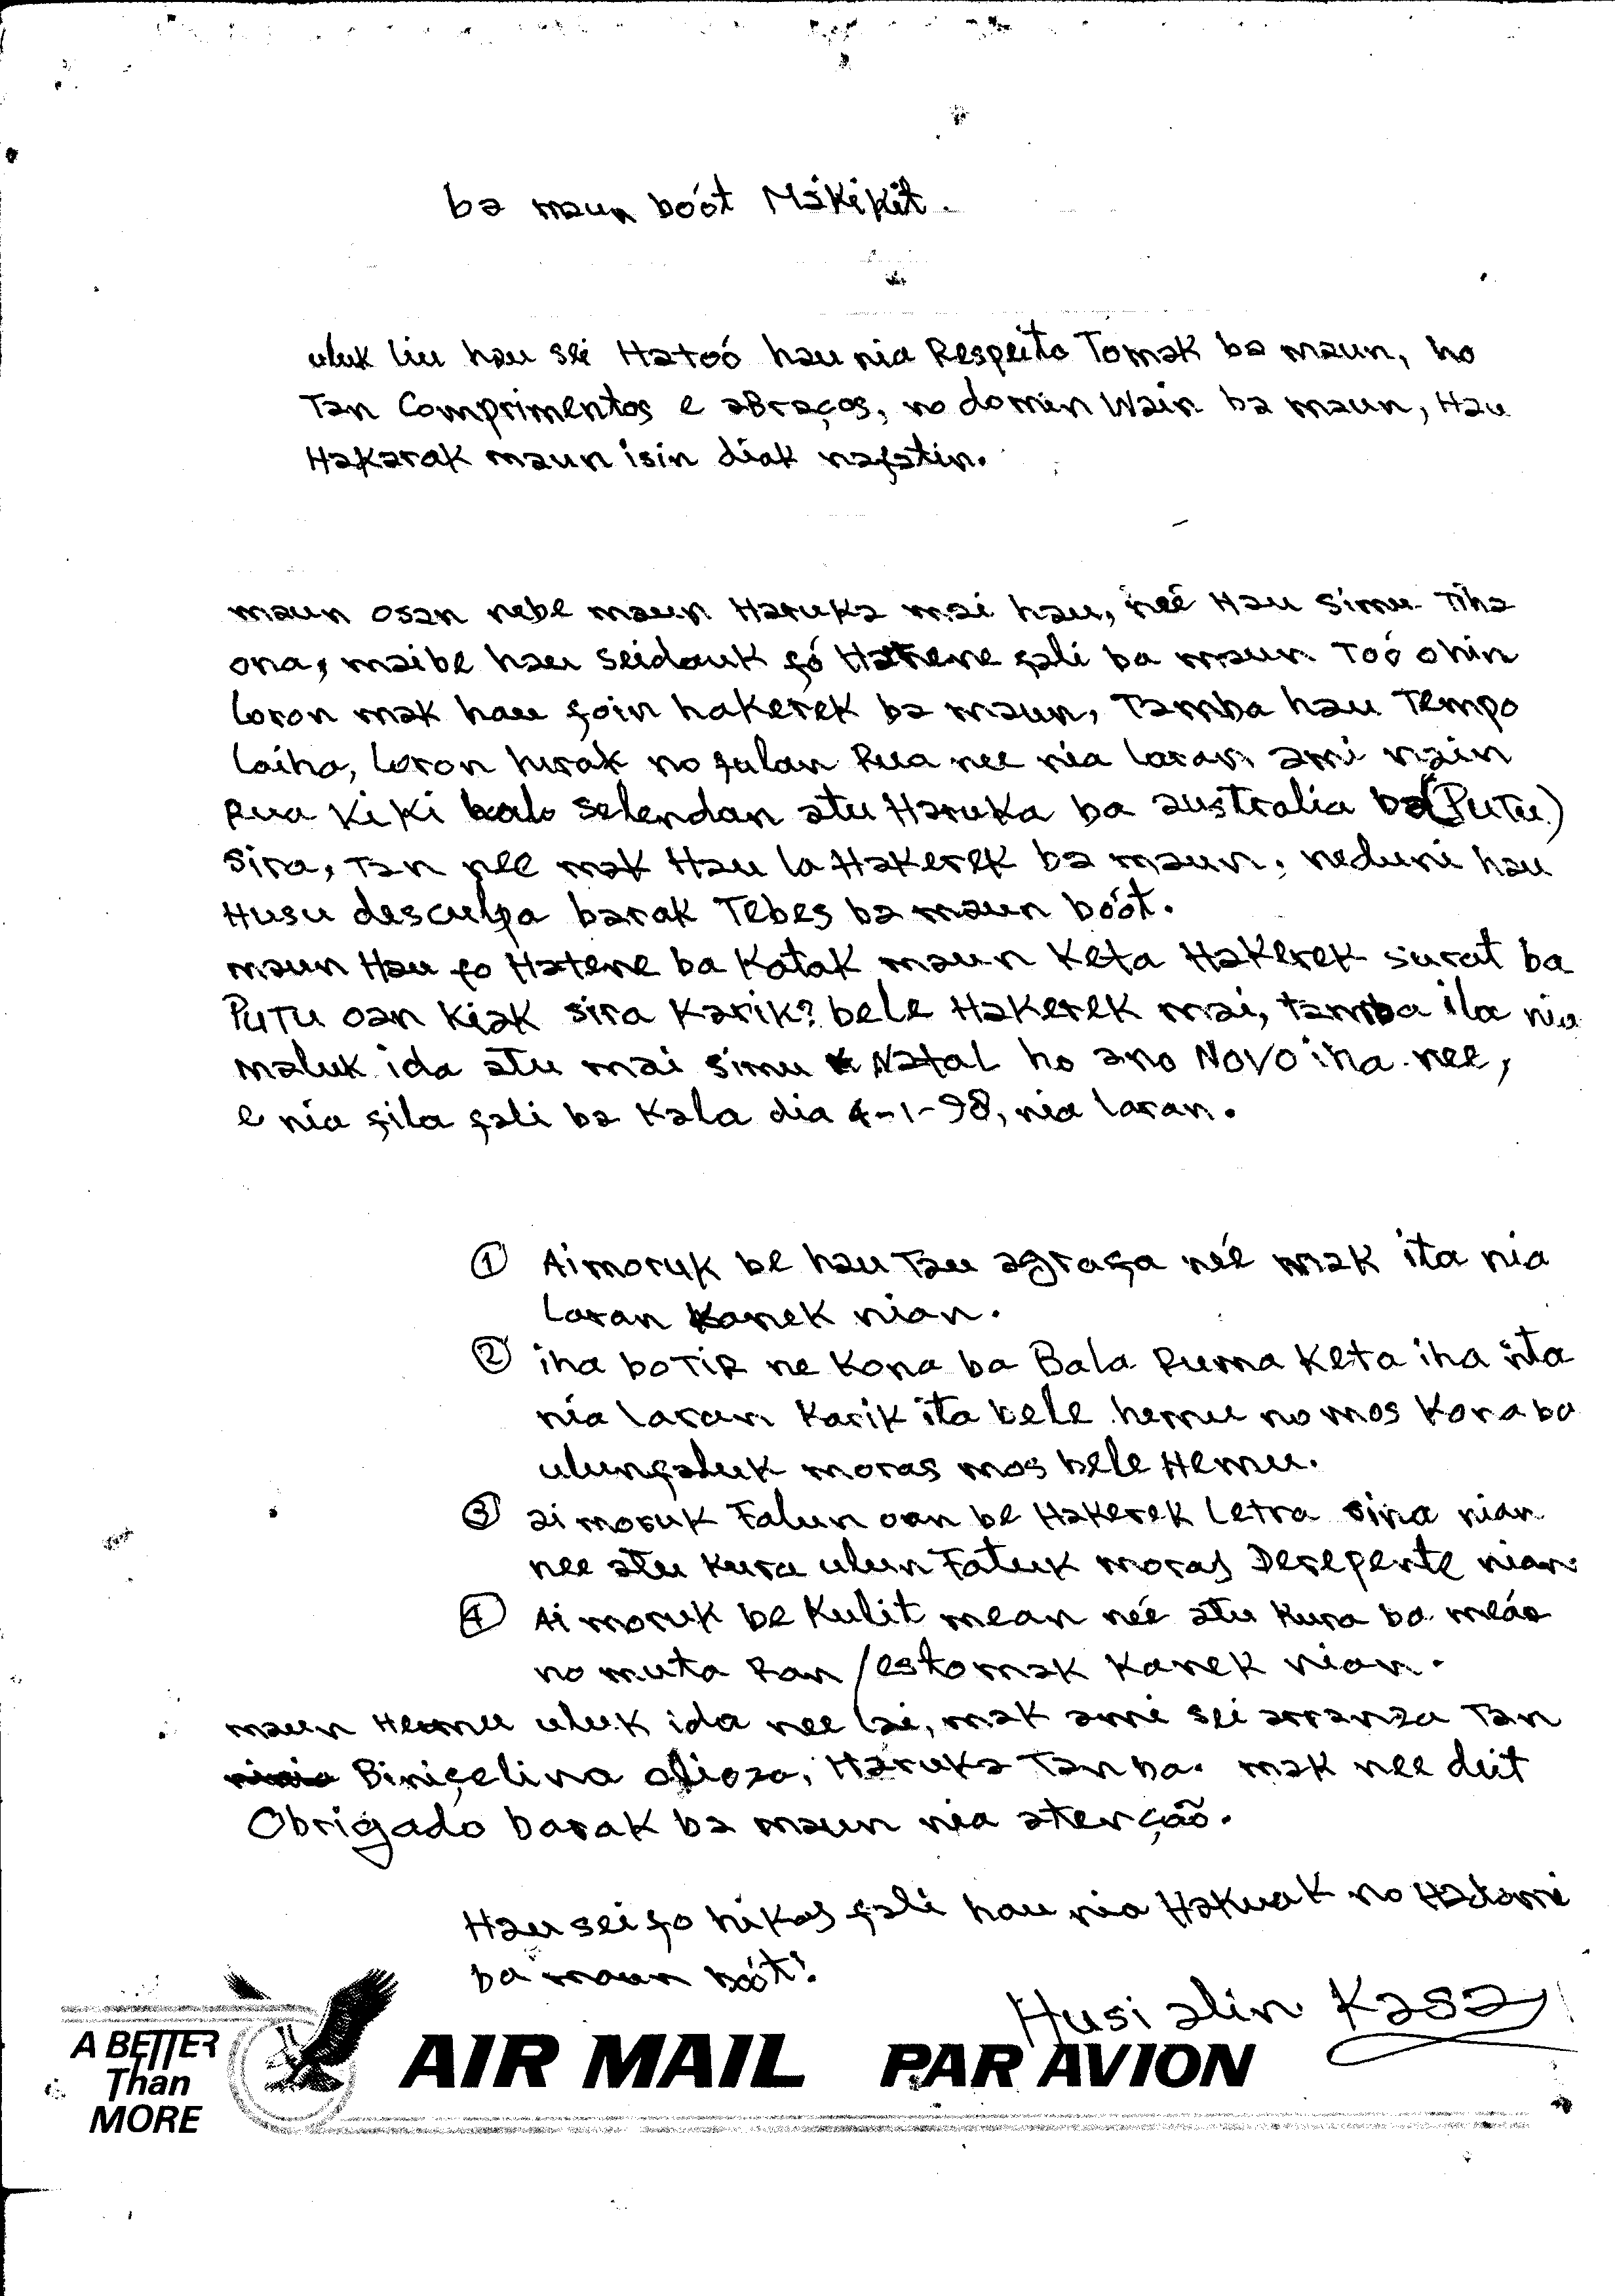 ba maun boót Mákikit.
uluk liu hau sei Hatoó hau nia Respeito Tomak ba maun, ho
Tan Comprimentos e abraços, no domin Wain ba maun, Hau
Hakarak maun isin diak nafatin.
maun osan nebe maun Haruka mai hau, neé Hau simu Tiha
ona, maibe hau seidauk fó Hatene fali ba maun Toó ohin
loron mak hau foin hakerek ba maun, Tamba hau Tempo
laiha, loron hirak no fulan Rua nee nia laran ami nain
Rua KiKi halo selendan atu Haruka ba australia ba (PuTu.)
sira, Tan nee mak Hau la Hakerek ba maun, neduni hau
Husu desculpa barak Tebes ba maun boót.
maun Hau fo Hatene ba Katak maun Keta Hakerek surat ba
PuTu oan Kiak sira Karik? bele Hakerek mai, tamba ita nia
maluk ida atu mai simu Natal ho ano Novo iha nee,
e nia fila fali ba Kala dia 4-1-98, nia laran.
① Aimoruk be hau Tau agrafa neé mak ita nia
Laran Kanek nian.
② iha boTiR ne Kona ba Bala Ruma Keta iha ita
nia laran Karik ita bele hemu no mos Kona ba
ulunfatuk moras mos bele Hemu.
③ ai moruk Falun oan be Hakerek Letra sina nian
nee atu Kura ulun Fatuk moras Derepente nian.
④ Ai moruk be Kulit mean neé atu Kura ba meár
no muta Ran / estomak Kanek nian.
maun Hemu uluk ida nee lai, mak ami sei arranza Tan
Binifelina Haruka Tan ba. mak nee deit
Obrigado barak ba maun nia atençaõ.
Hau sei fo hikas fali hau nia Hakuak no Hadomi
ba maun boót!
Husi alin Kasa
A BETTER
Than
MORE
AIR MAIL PAR AVION